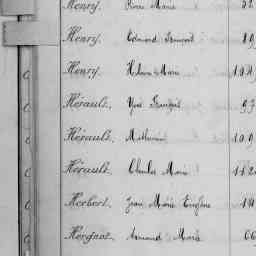 Henry. Pierre Marie 52
Henry. Edmond François 89
Henry. Hélène Marie
Hérault. Yves François 97
Hérault. Mathurin 109
Hérault. Charles Marie 112
Herbert. Jean Marie Eugène 19
Hergnot. Armand Marie 66